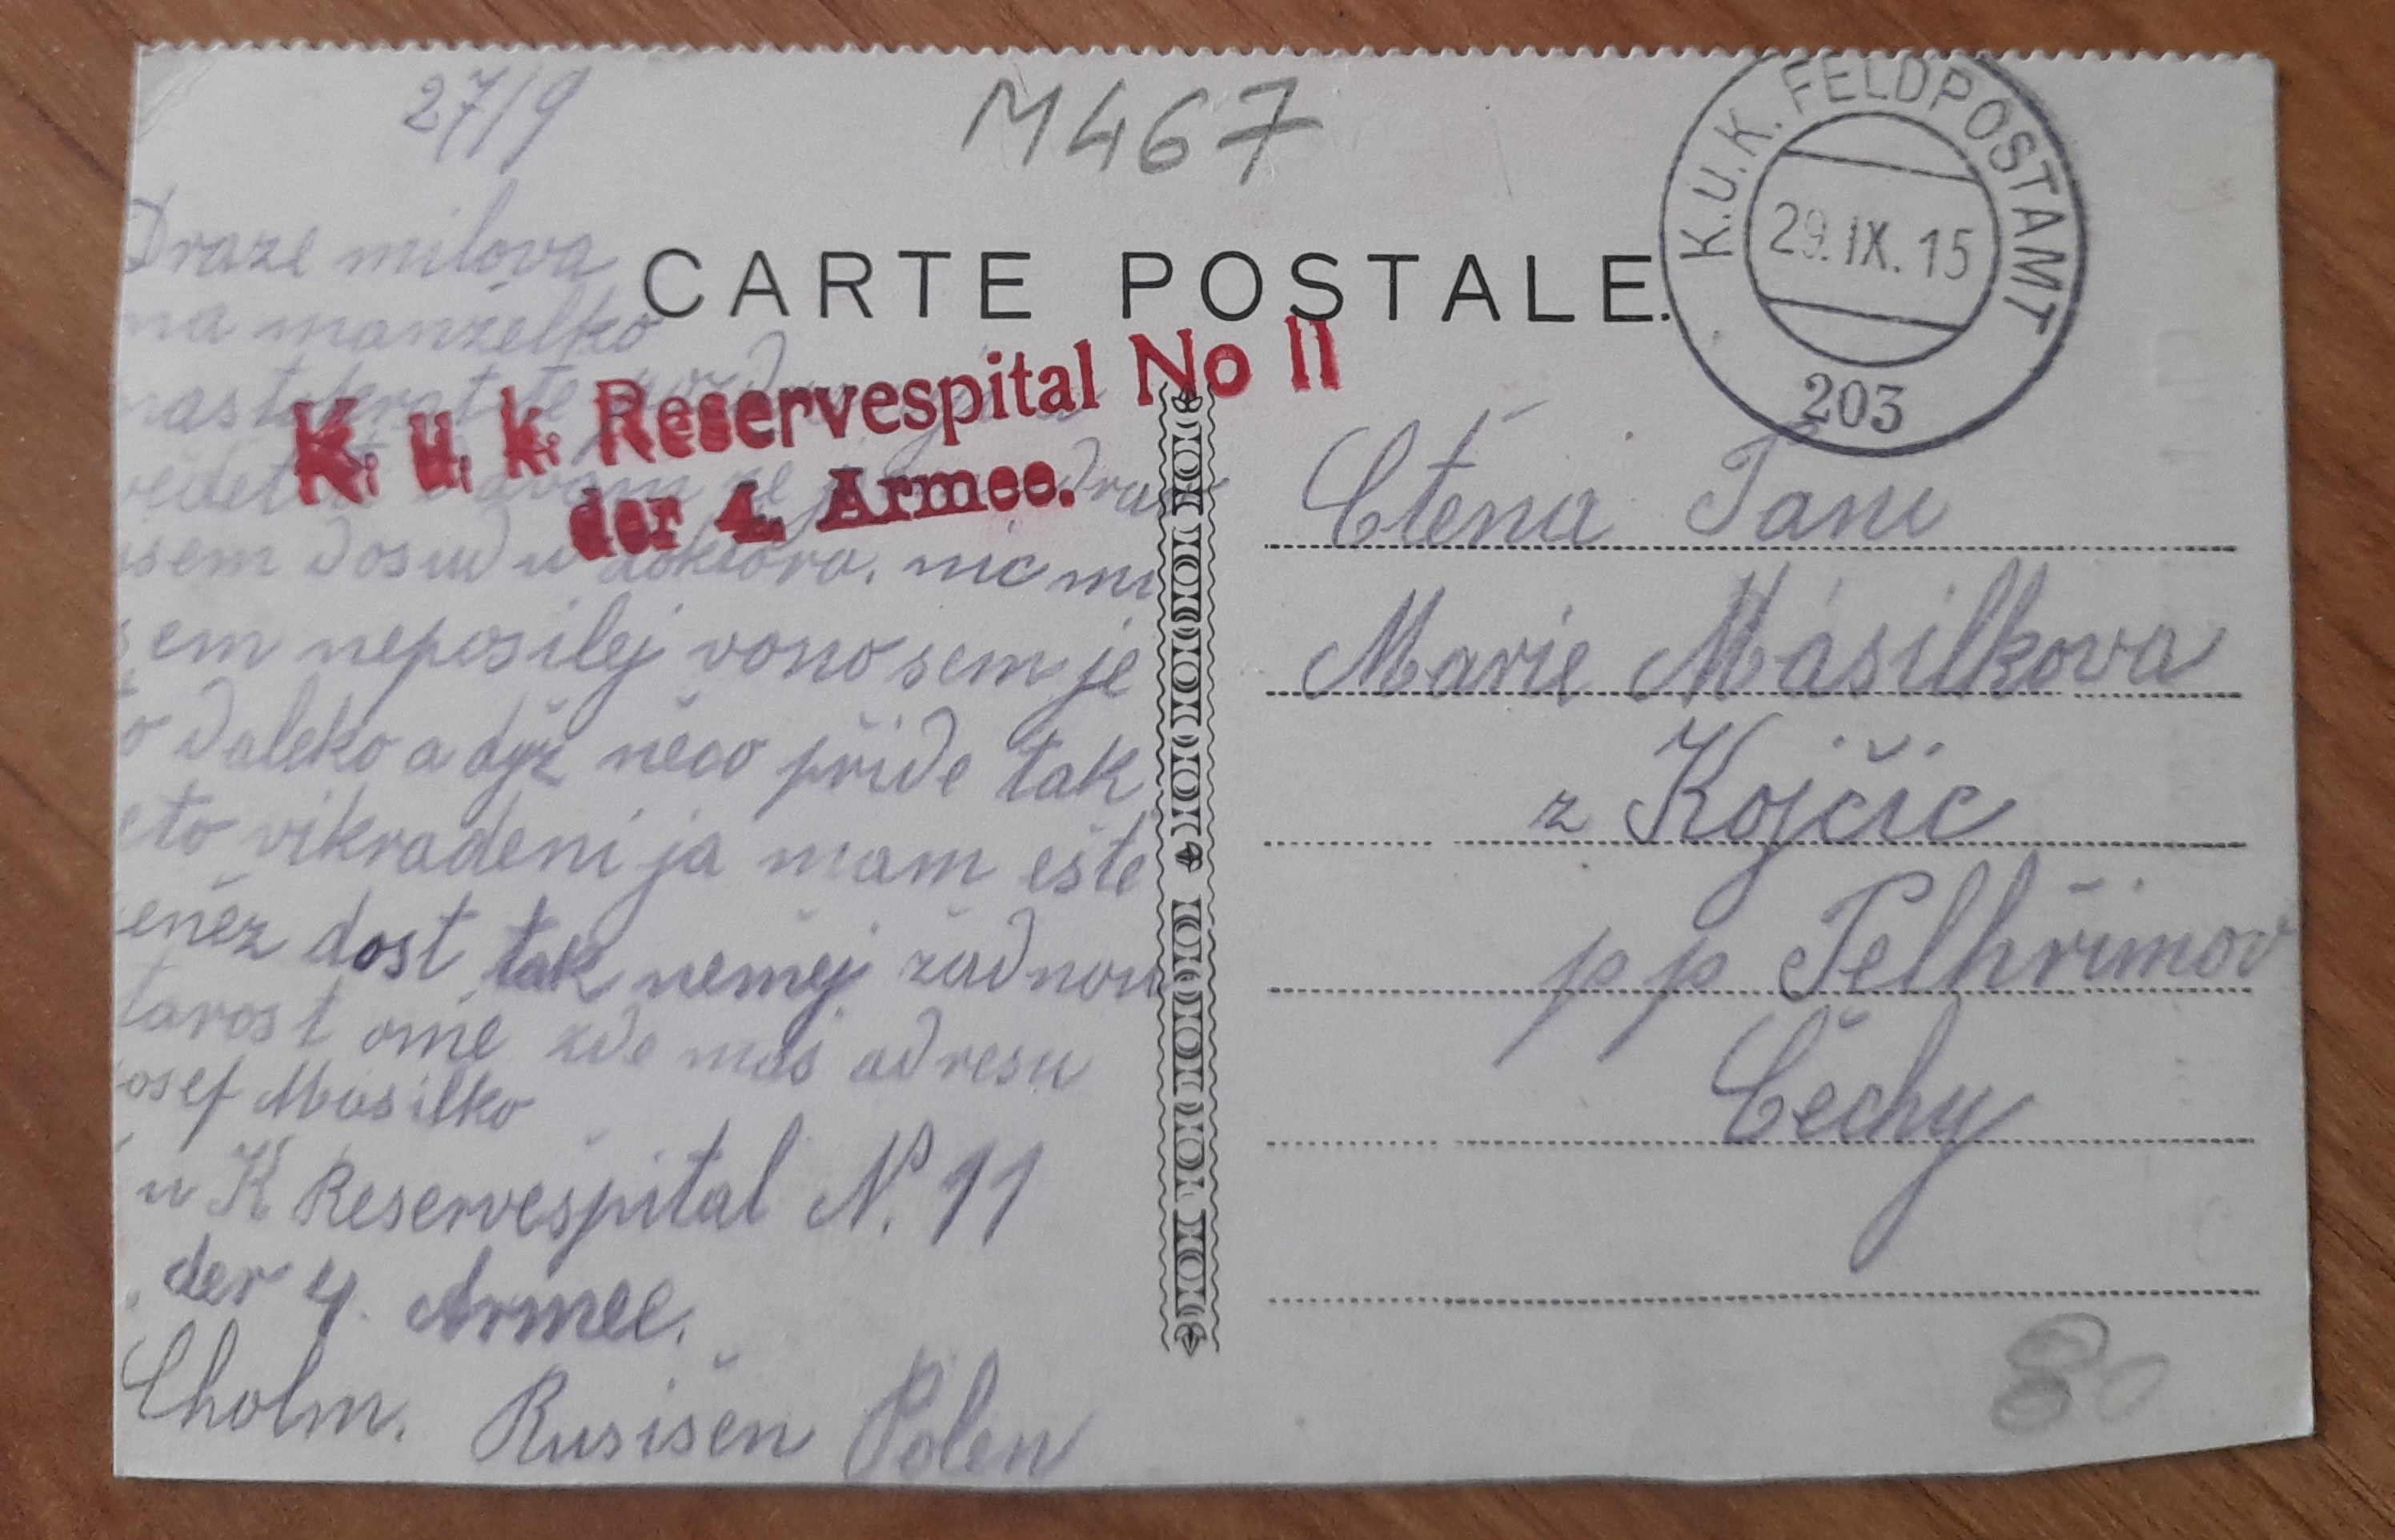 27/9
M467
K.U.K. FELDPOSTAMT
29.IX.15
203
CARTE POSTALE.
K. u. k. Reservespital No 11
der 4. Armee.
Draze milova
na manželko
te
jsem dosud u doktora. nic mi
sem neposilej vono sem je
daleko a dyž něco přide tak
eto vikradeni ja mam ešte
eněz dost tak neměj žadnou
tarost omě zde maš adresu
osef Masilko
u K Reservespital No. 11
der 4. Armee.
Cholm. Rusišen Polen
Ctěna Pani
Marie Másilkova
z Kojčic
pp Pelhřimov
Čechy
80